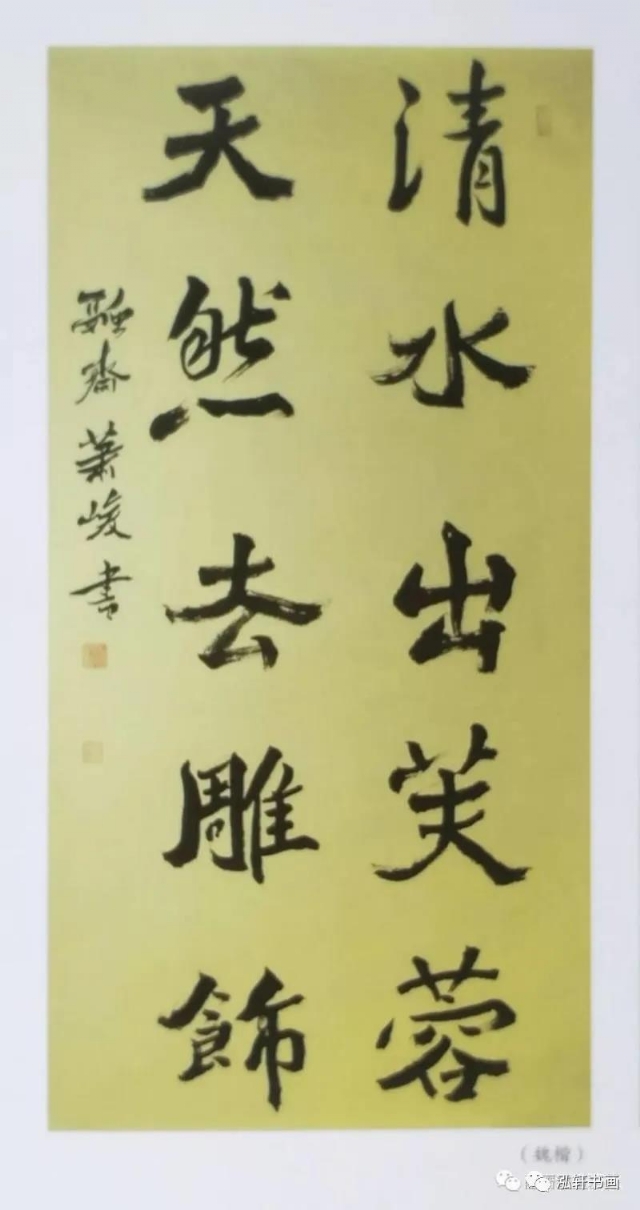 清水出芙蓉
天然去雕飾
齋蕭峻書
（魏楷）
泓轩书画